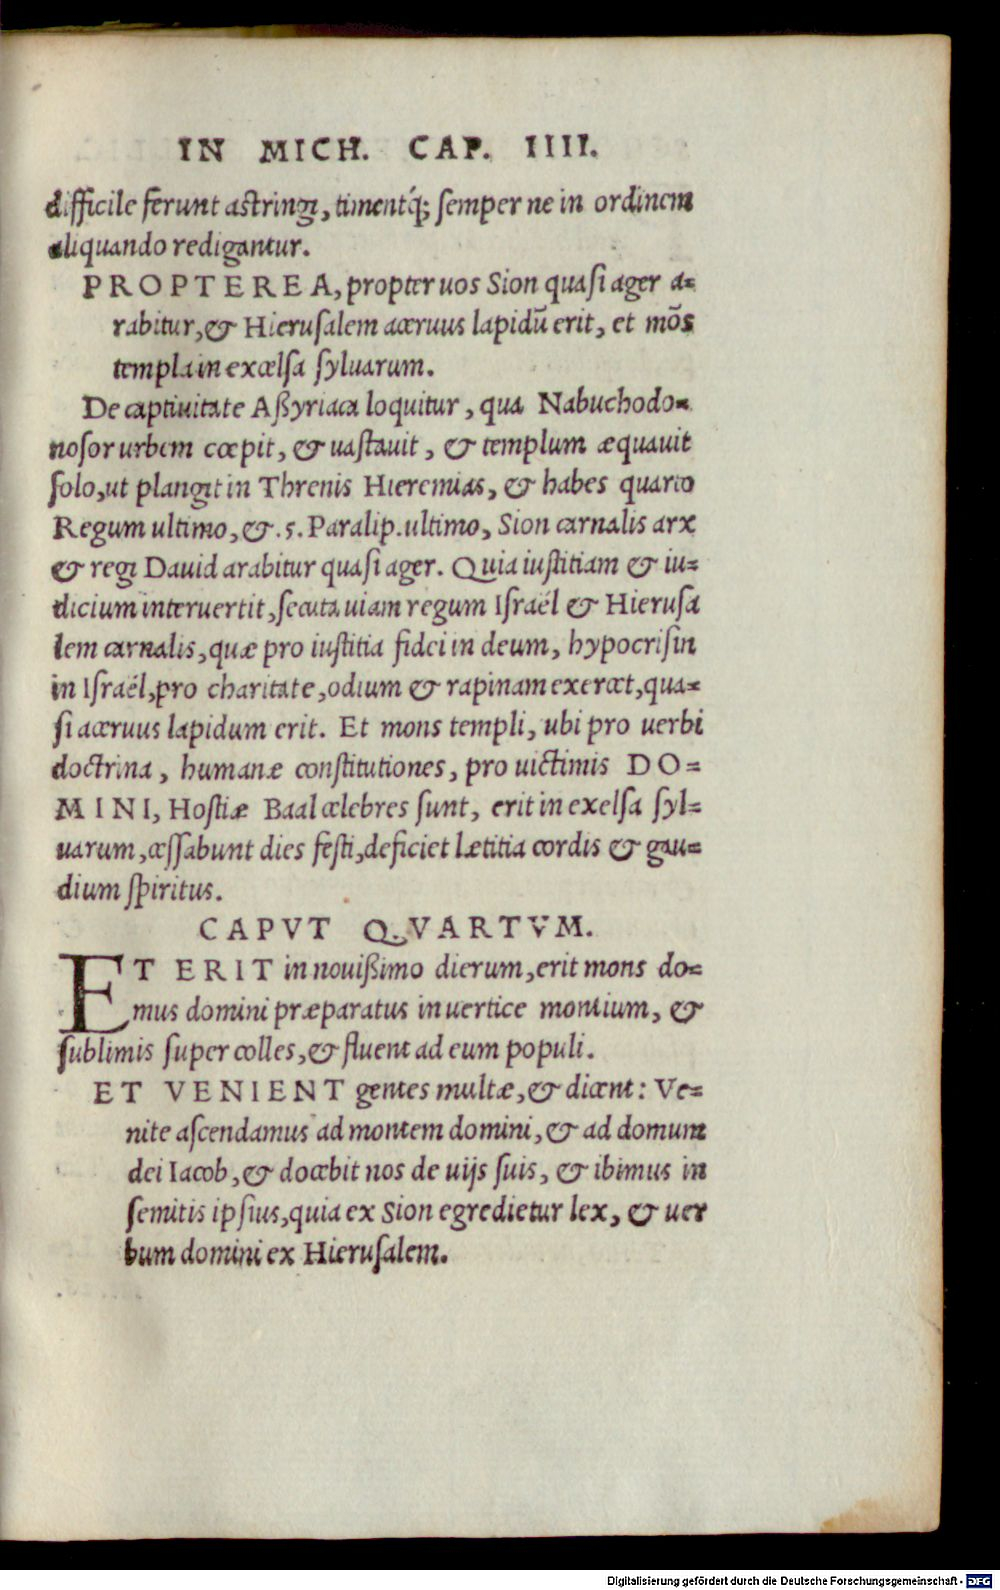 IN MICH. CAP. IIII.
difficile ferunt astringi, timentq́; semper ne in ordinem
aliquando redigantur.
PROPTEREA, propter uos Sion quasi ager a-
rabitur, & Hierusalem aceruus lapidũ erit, et mõs
templa in excelsa syluarum.
De captiuitate Aßyriaca loquitur, qua Nabuchodo-
nosor urbem cœpit, & uastauit, & templum æquauit
solo, ut plangit in Threnis Hieremias, & habes quarto
Regum ultimo, & .5. Paralip. ultimo, Sion carnalis arx
& regi Dauid arabitur quasi ager. Quia iustitiam & iu-
dicium interuertit, secuta uiam regum Israél & Hierusa
lem carnalis, quæ pro iustitia fidei in deum, hypocrisin
in Israél, pro charitate, odium & rapinam exercet, qua-
si aceruus lapidum erit. Et mons templi, ubi pro uerbi
doctrina, humanæ constitutiones, pro uictimis DO-
MINI, Hostiæ Baal celebres sunt, erit in exelsa syl-
uarum, cessabunt dies festi, deficiet lætitia cordis & gau-
dium spiritus.
CAPVT QVARTVM.
ET ERIT in nouißimo dierum, erit mons do-
mus domini præparatus in uertice montium, &
sublimis super colles, & fluent ad eum populi.
ET VENIENT gentes multæ, & dicent: Ve-
nite ascendamus ad montem domini, & ad domum
dei Iacob, & docebit nos de uijs suis, & ibimus in
semitis ipsius, quia ex Sion egredietur lex, & uer
bum domini ex Hierusalem.
Digitalisierung gefördert durch die Deutsche Forschungsgemeinschaft - DFG